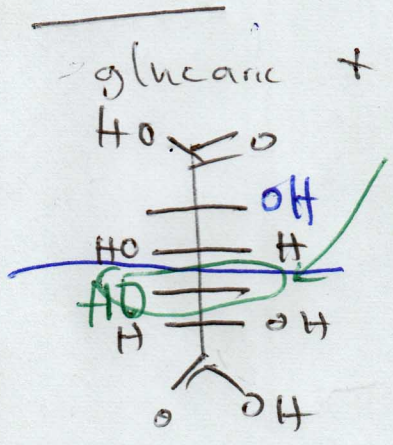 glucaric +
HO O
OH
HO H
HO
H OH
O OH